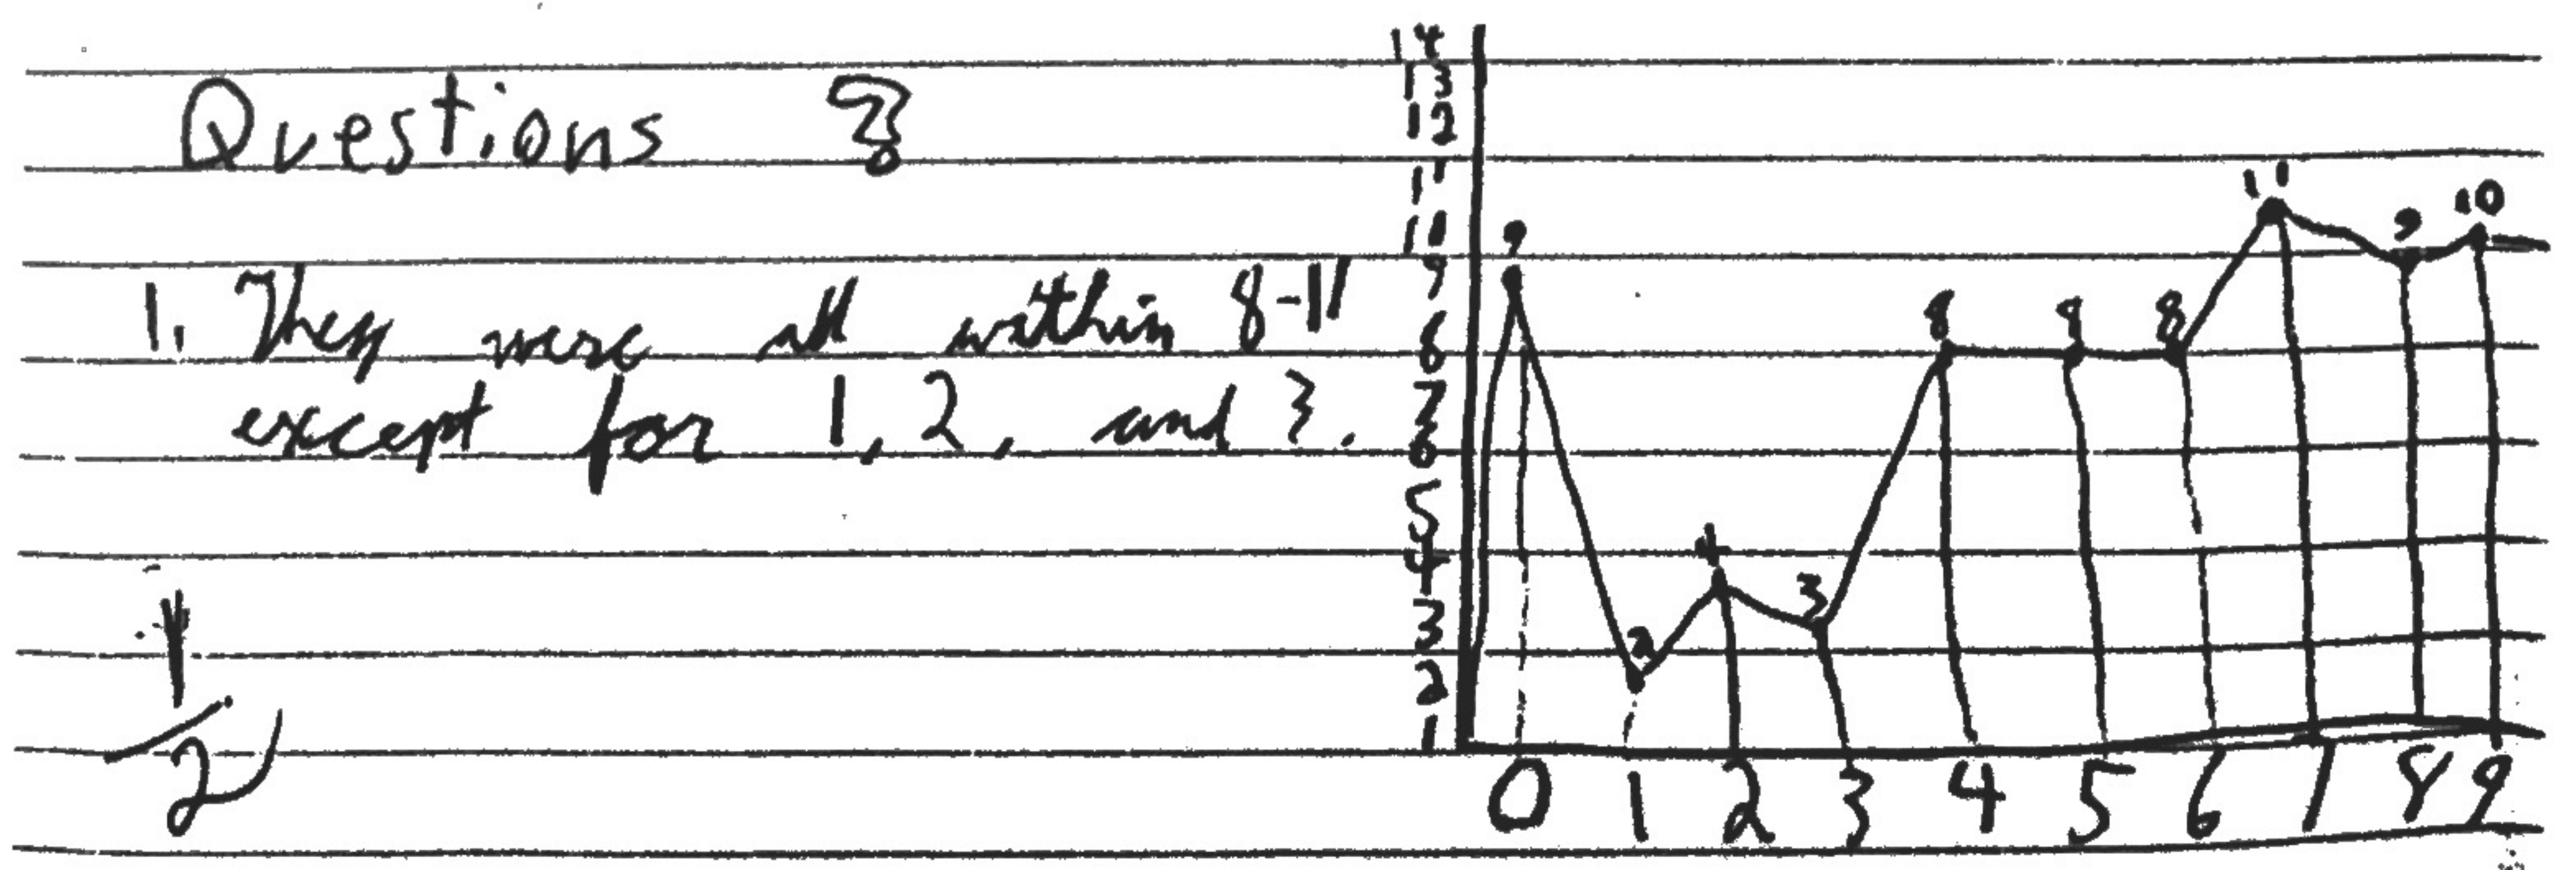 Questions ?
1. They were all within 8-11
except for 1, 2, and 3.
2
14
13
12
11
10
9
8
7
6
5
4
3
2
1
9
2
4
3
8
8
8
11
9
10
0 1 2 3 4 5 6 7 8 9